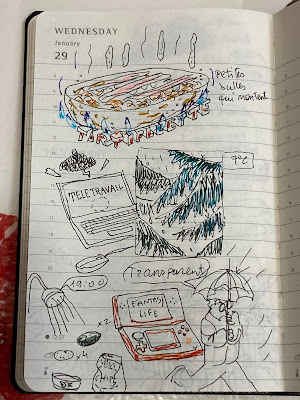 WEDNESDAY
January
29
petites
bulles
qui montent
7°C
TÉLÉTRAVAIL
19:00
Transparent
FANTASY
LIFE
x2
x4
CHIPS